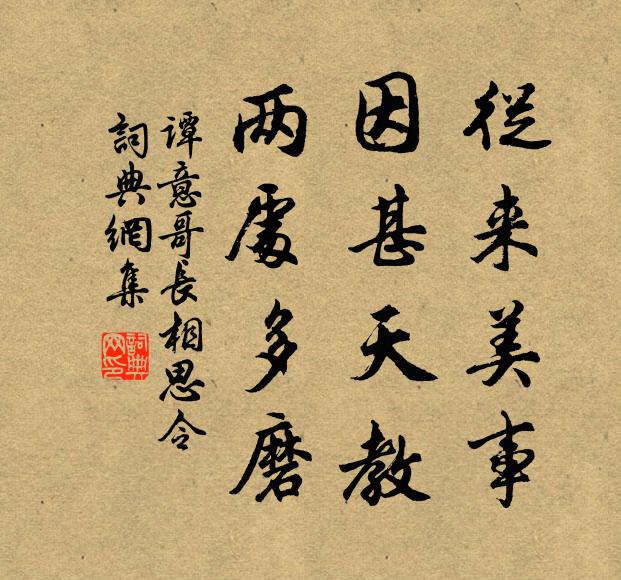 從来美事
因甚天教
两處多磨
谭意哥長相思令
詞典網集
詞典
网印